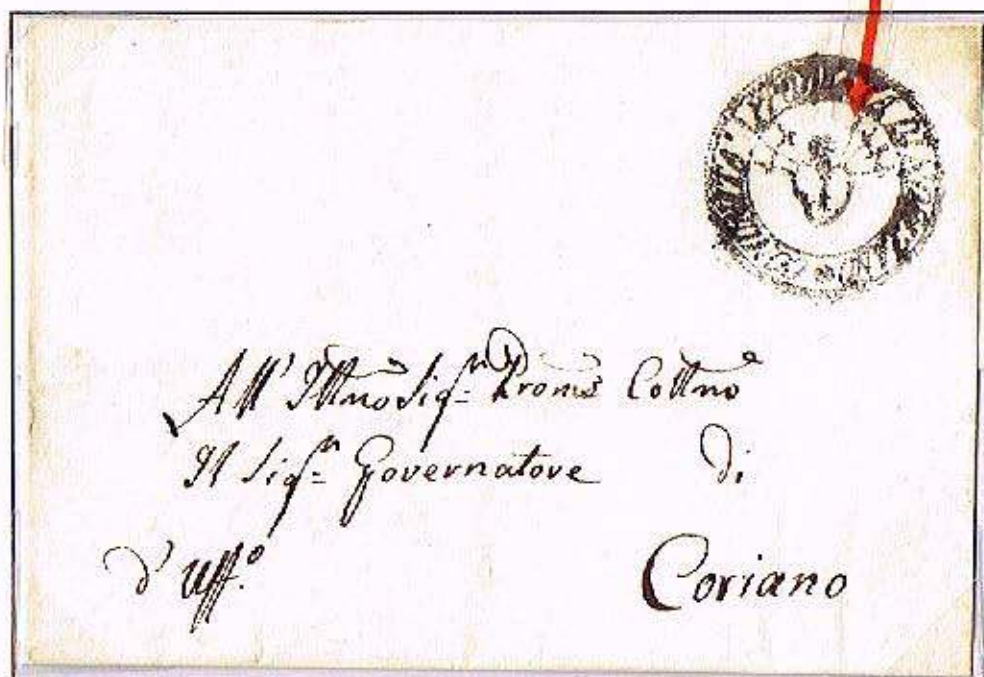 All' Illmo Sigr. Promo Collmo
Il Sigr. Governatore di
d'Uffo. Coriano